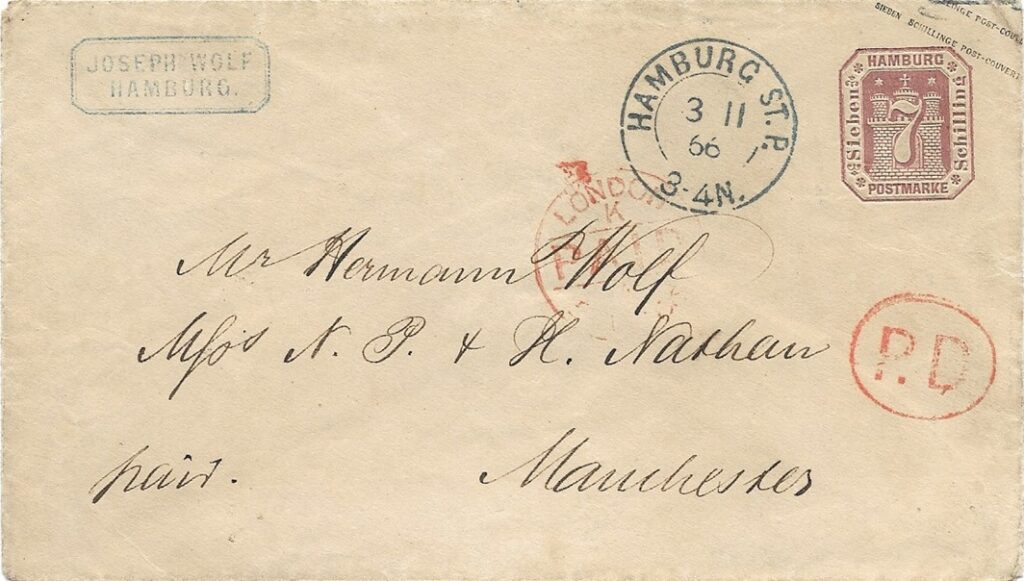 JOSEPH WOLF
HAMBURG.
HAMBURG ST. P.
3 11
66
3-4N.
SIEBEN SCHILLINGE POST-COUVERT
HAMBURG
Sieben
7
Schilling
POSTMARKE
LONDON
K
PAID
Mr Hermann Wolf
Messrs N. P. & H. Nathan
P.D
paid.
Manchester